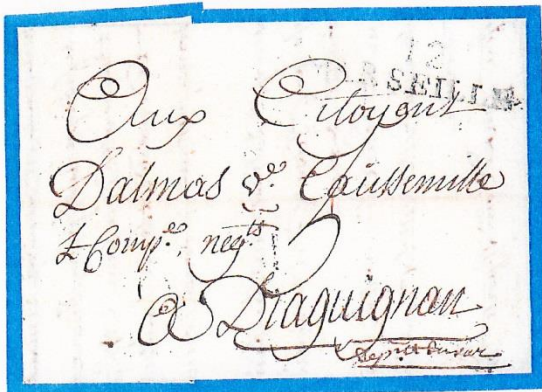 12
MARSEILLE
Aux Citoyens
Dalmas Ve Caussemille
& Compe. negts
3
A Draguignan
Depmt du var